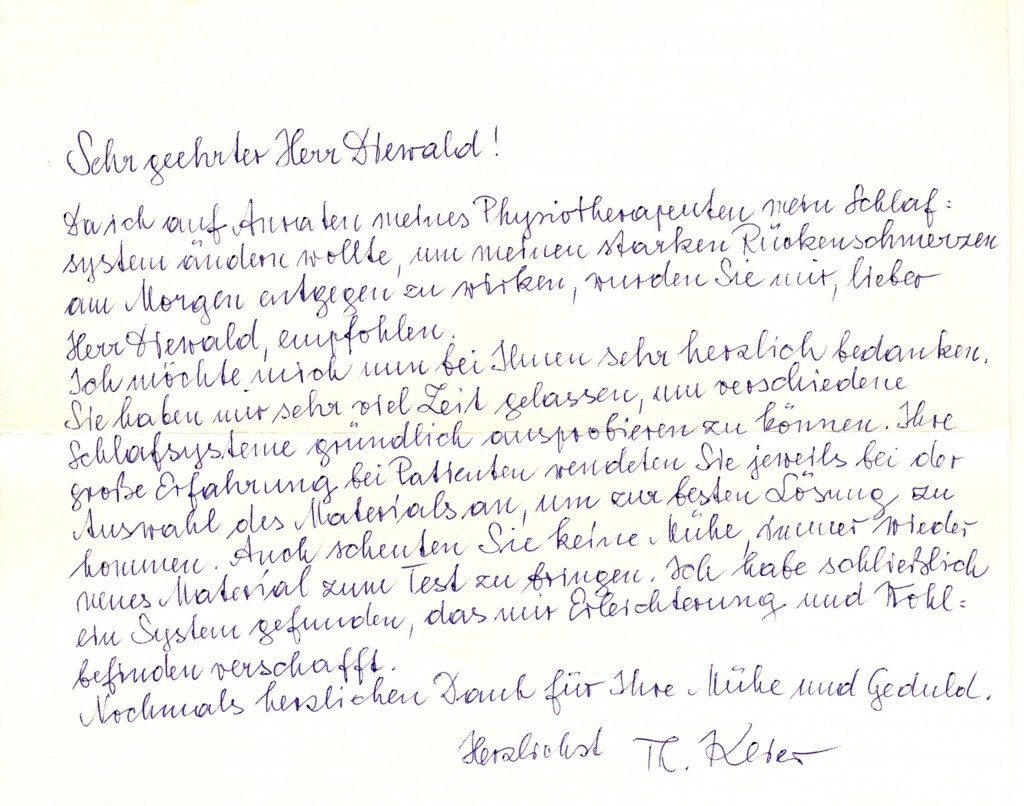 Sehr geehrter Herr Diewald!
Da ich auf Anraten meines Physiotherapeuten mein Schlaf=
system ändern wollte, um meinen starken Rückenschmerzen
am Morgen entgegen zu wirken, wurden Sie mir, lieber
Herr Diewald, empfohlen.
Ich möchte mich nun bei Ihnen sehr herzlich bedanken.
Sie haben mir sehr viel Zeit gelassen, um verschiedene
Schlafsysteme gründlich ausprobieren zu können. Ihre
große Erfahrung bei Patienten wendeten Sie jeweils bei der
Auswahl des Materials an, um zur besten Lösung zu
kommen. Auch scheuten Sie keine Mühe, immer wieder
neues Material zum Test zu bringen. Ich habe schließlich
ein System gefunden, das mir Erleichterung und Wohl=
befinden verschafft.
Nochmals herzlichen Dank für Ihre Mühe und Geduld.
Herzlichst Th.